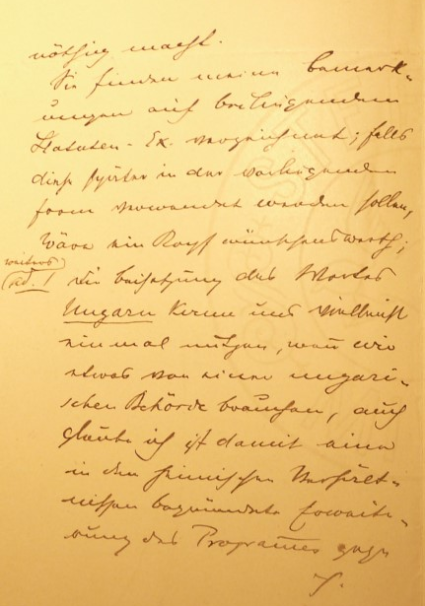 nöthig macht.
Sie finden meine Bemerk-
ungen auf beiliegendem
Statuten-Ex. verzeichnet; falls
diese später in der vorliegenden
Form verwendet werden sollen,
wäre ein Kopf wünschenswerth;
weiters
ad. 1 die Beisetzung des Wortes
Ungarn kann uns vielleicht
einmal nützen, wenn wir
etwas von einer ungari-
schen Behörde brauchen, auch
glaube ich ist damit eine
in den heimischen Verhält-
nissen begründete Erweite-
rung des Programmes